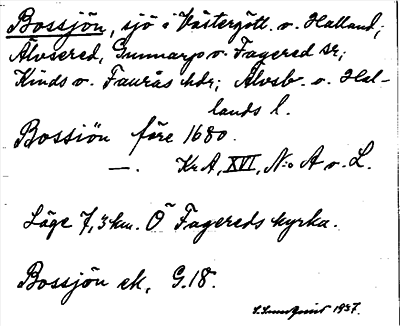 Bossjön, sjö i Västergötl. o. Halland;
Älvsered, Gunnarp o. Fagered sr;
Kinds o. Faurås hdr; Älvsb. o. Hal-
lands l.
Bossiön före 1680.
—. KrA, XVI, N:o A o. L.
Läge 7,3 km. O Fagereds kyrka.
Bossjön ek, G.18.
1937.